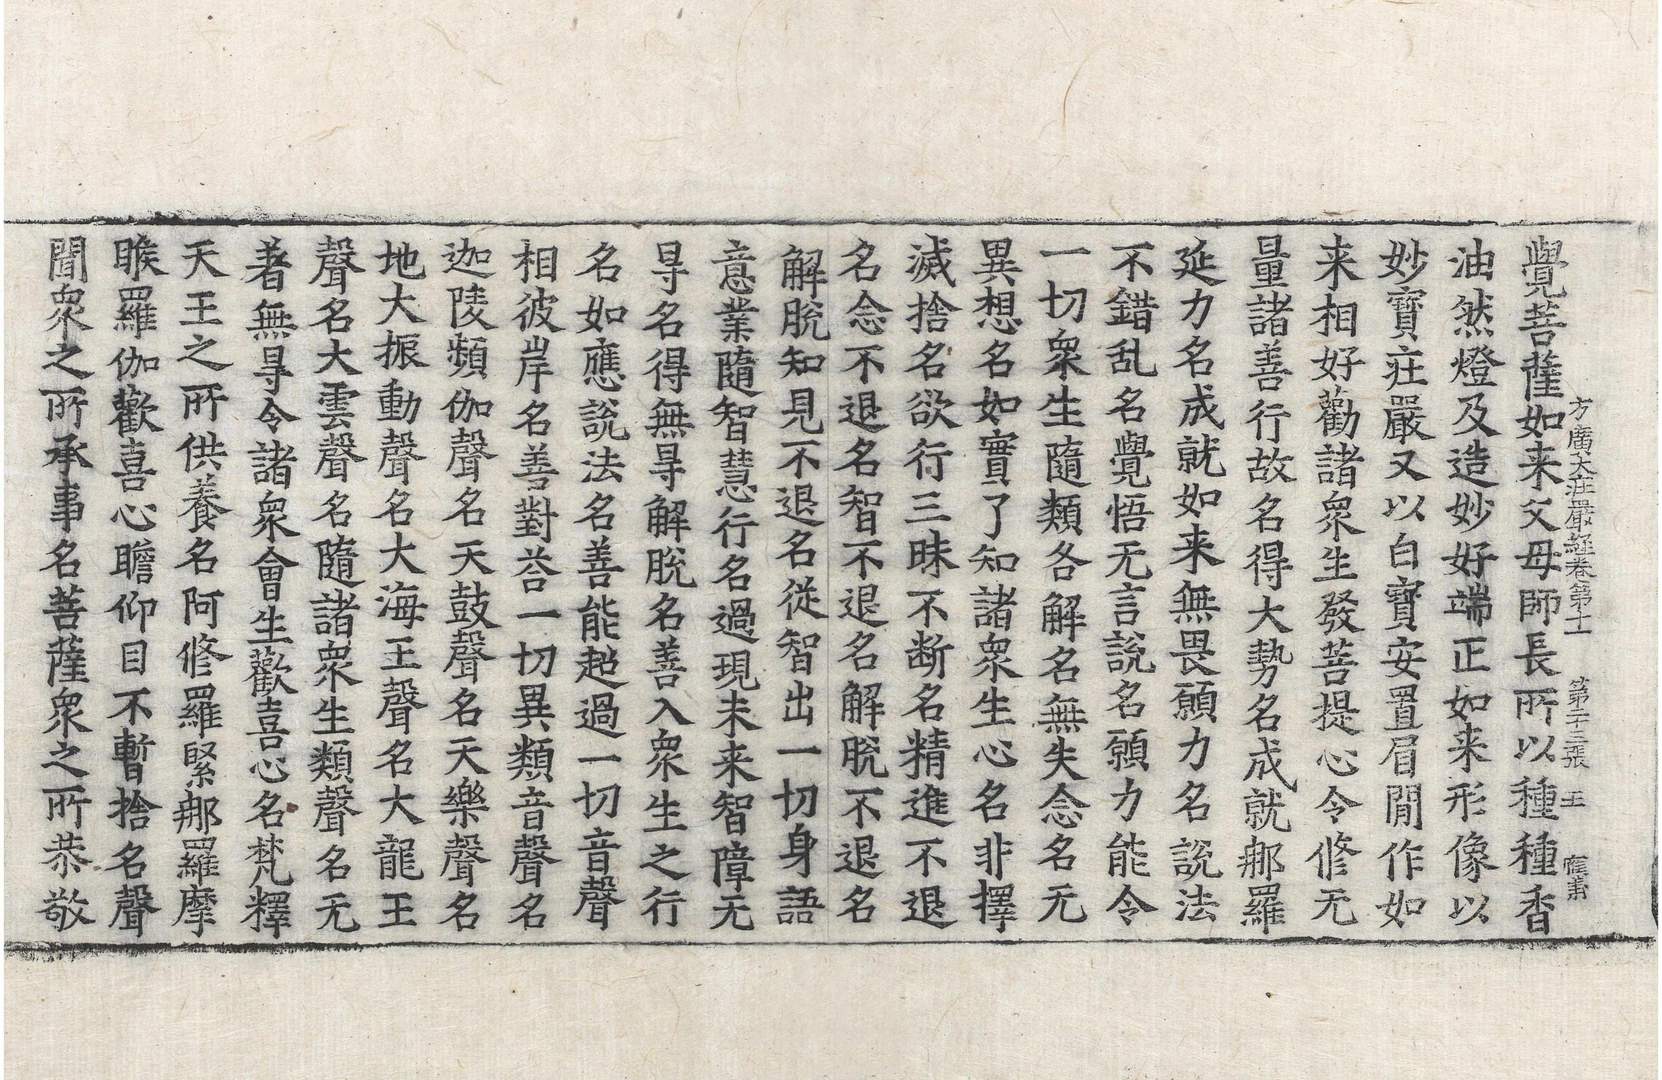 方廣大莊嚴経卷第十一 第二十三張 王
覺菩薩如来父母師長所以種種香
油然燈及造妙好端正如来形像以
妙寶庄嚴又以白寶安置眉閒作如
来相好勸諸衆生發菩提心令修无
量諸善行故名得大勢名成就郍羅
延力名成就如来無畏願力名說法
不錯乱名覺悟无言說名願力能令
一切衆生隨類各解名無失念名无
異想名如實了知諸衆生心名非擇
滅捨名欲行三昧不断名精進不退
名念不退名智不退名解脫不退名
解脫知見不退名從智出一切身語
意業隨智慧行名過現未来智障无
㝵名得無㝵解脫名善入衆生之行
名如應說法名善能超過一切音聲
相彼岸名善對荅一切異類音聲名
迦陵頻伽聲名天鼓聲名天樂聲名
地大振動聲名大海王聲名大龍王
聲名大雲聲名隨諸衆生類聲名无
著無㝵令諸衆會生歡喜心名梵釋
天王之所供養名阿修羅緊郍羅摩
睺羅伽歡喜心瞻仰目不暫捨名聲
聞衆之所承事名菩薩衆之所恭敬